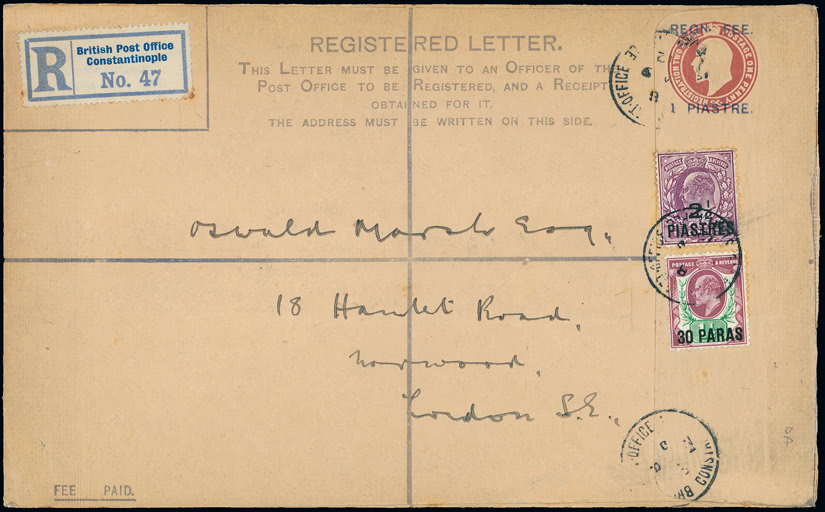 R
British Post Office
Constantinople
No. 47
REGISTERED LETTER.
THIS LETTER MUST BE GIVEN TO AN OFFICER OF THE
POST OFFICE TO BE REGISTERED, AND A RECEIPT
OBTAINED FOR IT.
THE ADDRESS MUST BE WRITTEN ON THIS SIDE.
REGN. FEE.
1 PIASTRE.
Oswald Marsh Esq.,
2
PIASTRES
POSTAGE & REVENUE
30 PARAS
18 Hamlet Road,
Norwood,
London S.E.,
FEE PAID.